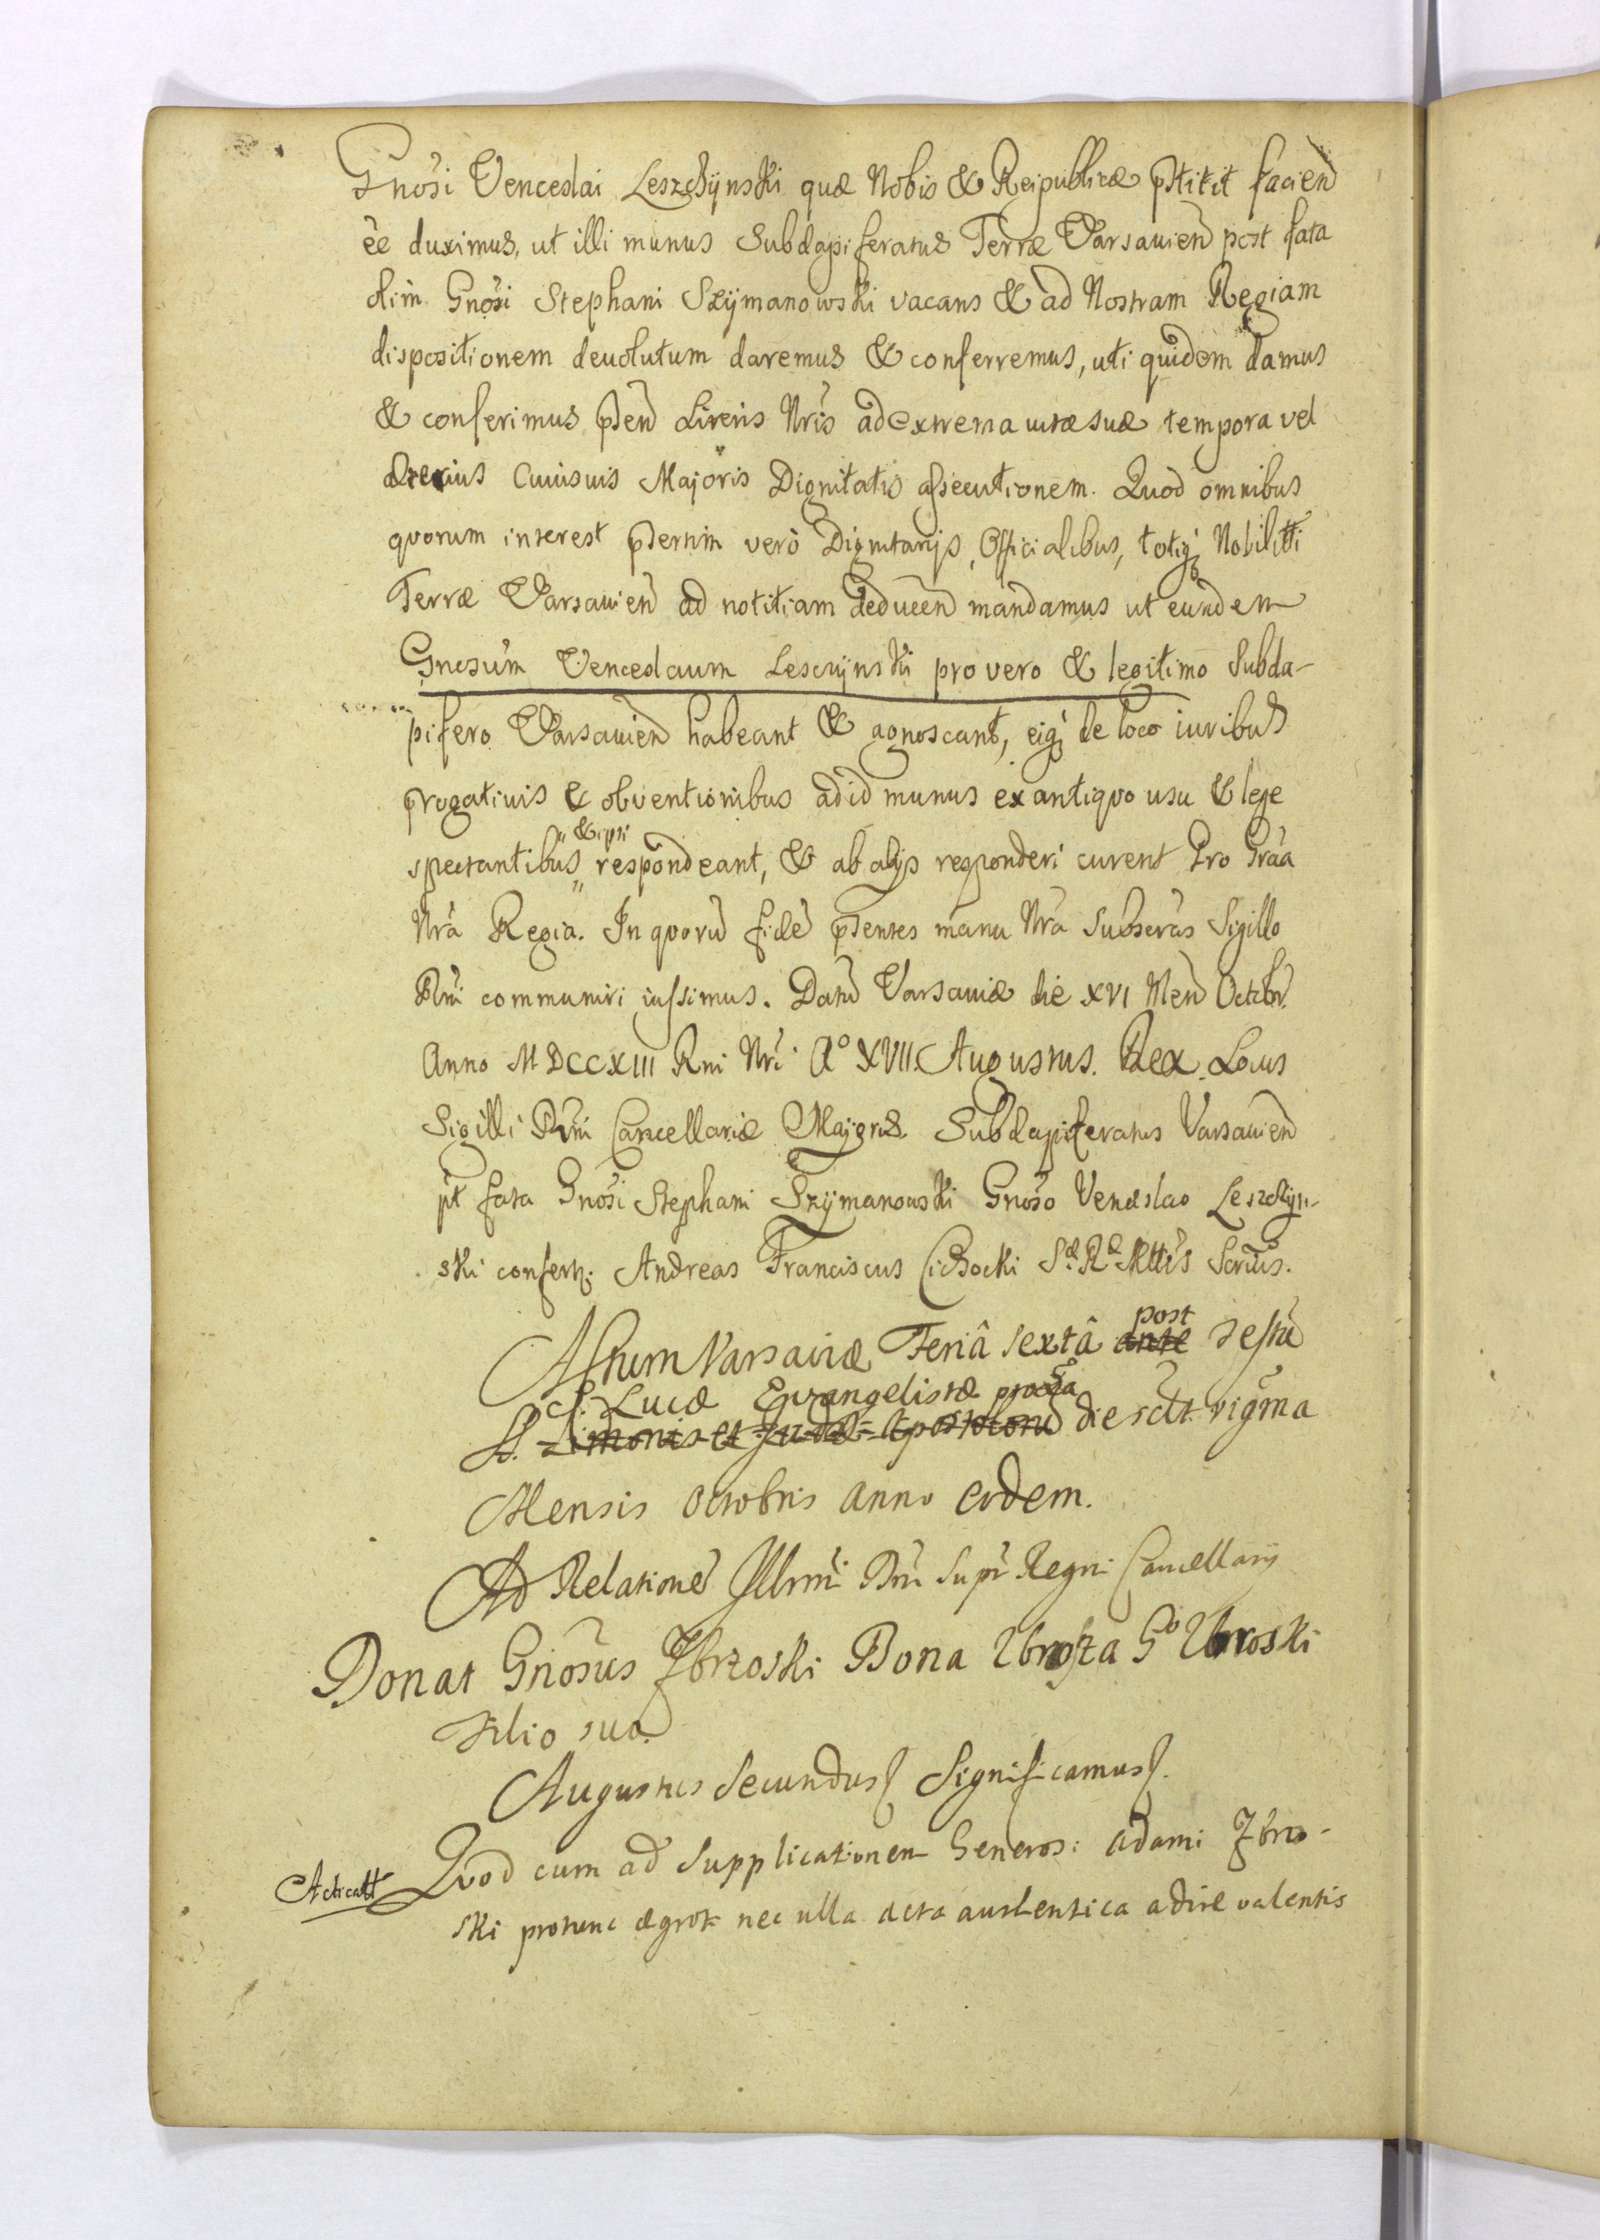 Gnosi Venceslai Leszczynski quæ Nobis & Reipublicæ pstitit faciend
ẽe duximus, ut illi munus Subdapiferatus Terræ Varsavien post fata
olim Gnosi Stephani Szÿmanowski vacans & ad Nostram Regiam
dispositionem devolutum daremus & conferremus, uti quidem damus
& conferimus psen Liris Nris ad extrema vitæ suæ tempora vel
Cuiusvis Majoris Dignitatis assecutionem. Quod omnibus
quorum interest psertim vero Dignitarijs, Officialibus, totiq Nobilitti
Terræ Varsavien ad notitiam deducen mandamus ut eundem
Gnosum Venceslaum Lesczÿnski pro vero & legitimo Subda-
pifero Varsavien habeant & agnoscant, eiq de loco iuribus
progativis & obventionibus ad id munus ex antiquo usu & lege
spectantibus & ipsi respondeant, & ab alijs responderi curent Pro Graa
Nra Regia. In quoru fide psentes manu Nra Subscras Sigillo
Rni communiri iussimus. Datu Varsaviæ die XVI Men Octobr.
Anno MDCCXIII Rni Nri Aº XVII. Augustus. Rex. Locus
Sigilli Rni Cancellariæ Majoris. Subdapiferatus Varsavien
pt fata Gnosi Stephani Szÿmanowski Gnoso Venceslao Leszczÿn-
ski confertr. Andreas Franciscus Cichocki S. R. Mttis Scrius.
Actum Varsaviæ Feriâ sextâ ante post Festu
S. Lucæ Evangelistæ proxa
SS. Simonis et Judæ Apostoloru die sclt. vigma
Mensis Octobris Anno eodem.
Ad Relatione Illrmi Dni Supr Regni Cancellarij
Donat Gnosus Zbrzoski Bona Zbrosza Go Zbroski
Filio suo.
Augustus Secundus Significamus
Acticatt
Quod cum ad Supplicationem Generos: Adami Zbro-
ski protunc ægrot nec ulla acta autentica adire valentis